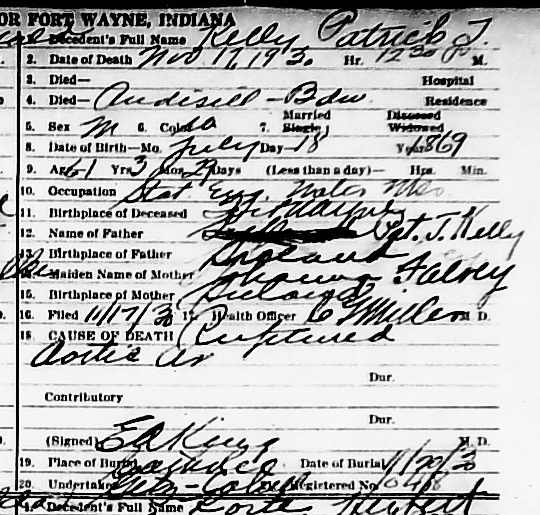 OR FORT WAYNE, INDIANA
1. Decedent's Full Name Kelly Patrick T.
2. Date of Death Nov 17, 193 Hr. 12 30 P M.
3. Died— Hospital
4. Died— Residence
Married Divorced
5. Sex M 6. Color 7. Single Widowed
8. Date of Birth—Mo. July Day— 18 Year 1869
9. Age 61 Yrs. 3 Mos. 29 Days (Less than a day)— Hrs. Min.
10. Occupation Stat. Eng.
11. Birthplace of Deceased Ft Wayne
12. Name of Father Pat. J. Kelly
13. Birthplace of Father
14. Maiden Name of Mother Johanna Falvey
15. Birthplace of Mother Ireland
16. Filed 11/17/30 17. Health Officer Miller M. D.
18. CAUSE OF DEATH Ruptured
Aortic
Dur.
Contributory
Dur.
(Signed) E A King M. D.
19. Place of Burial Date of Burial 11/20/30
20. Undertaker Registered No.
1. Decedent's Full Name Herbert